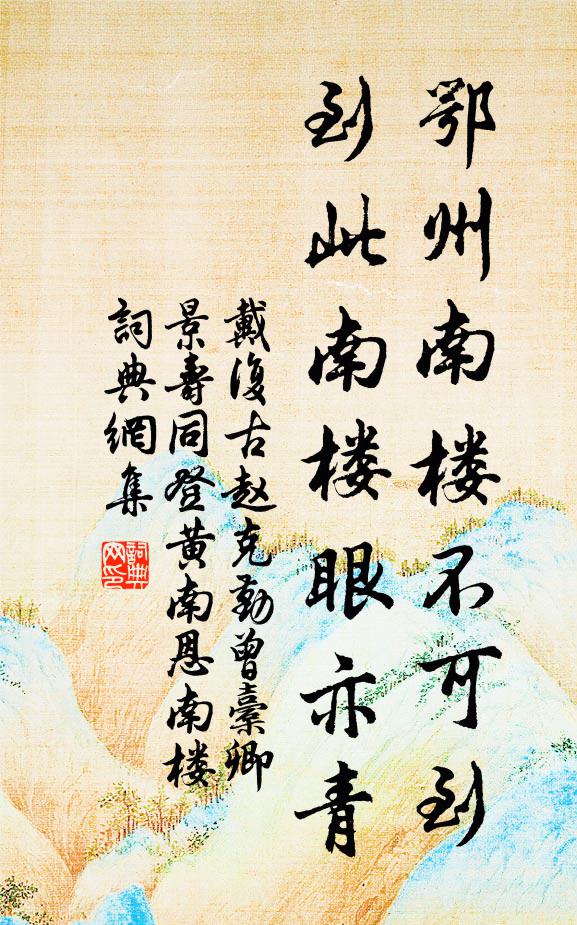 鄂州南楼不可到
到此南楼眼亦青
戴復古赵克勤曾橐卿
景壽同登黄南恩南楼
詞典網集
詞典
网印